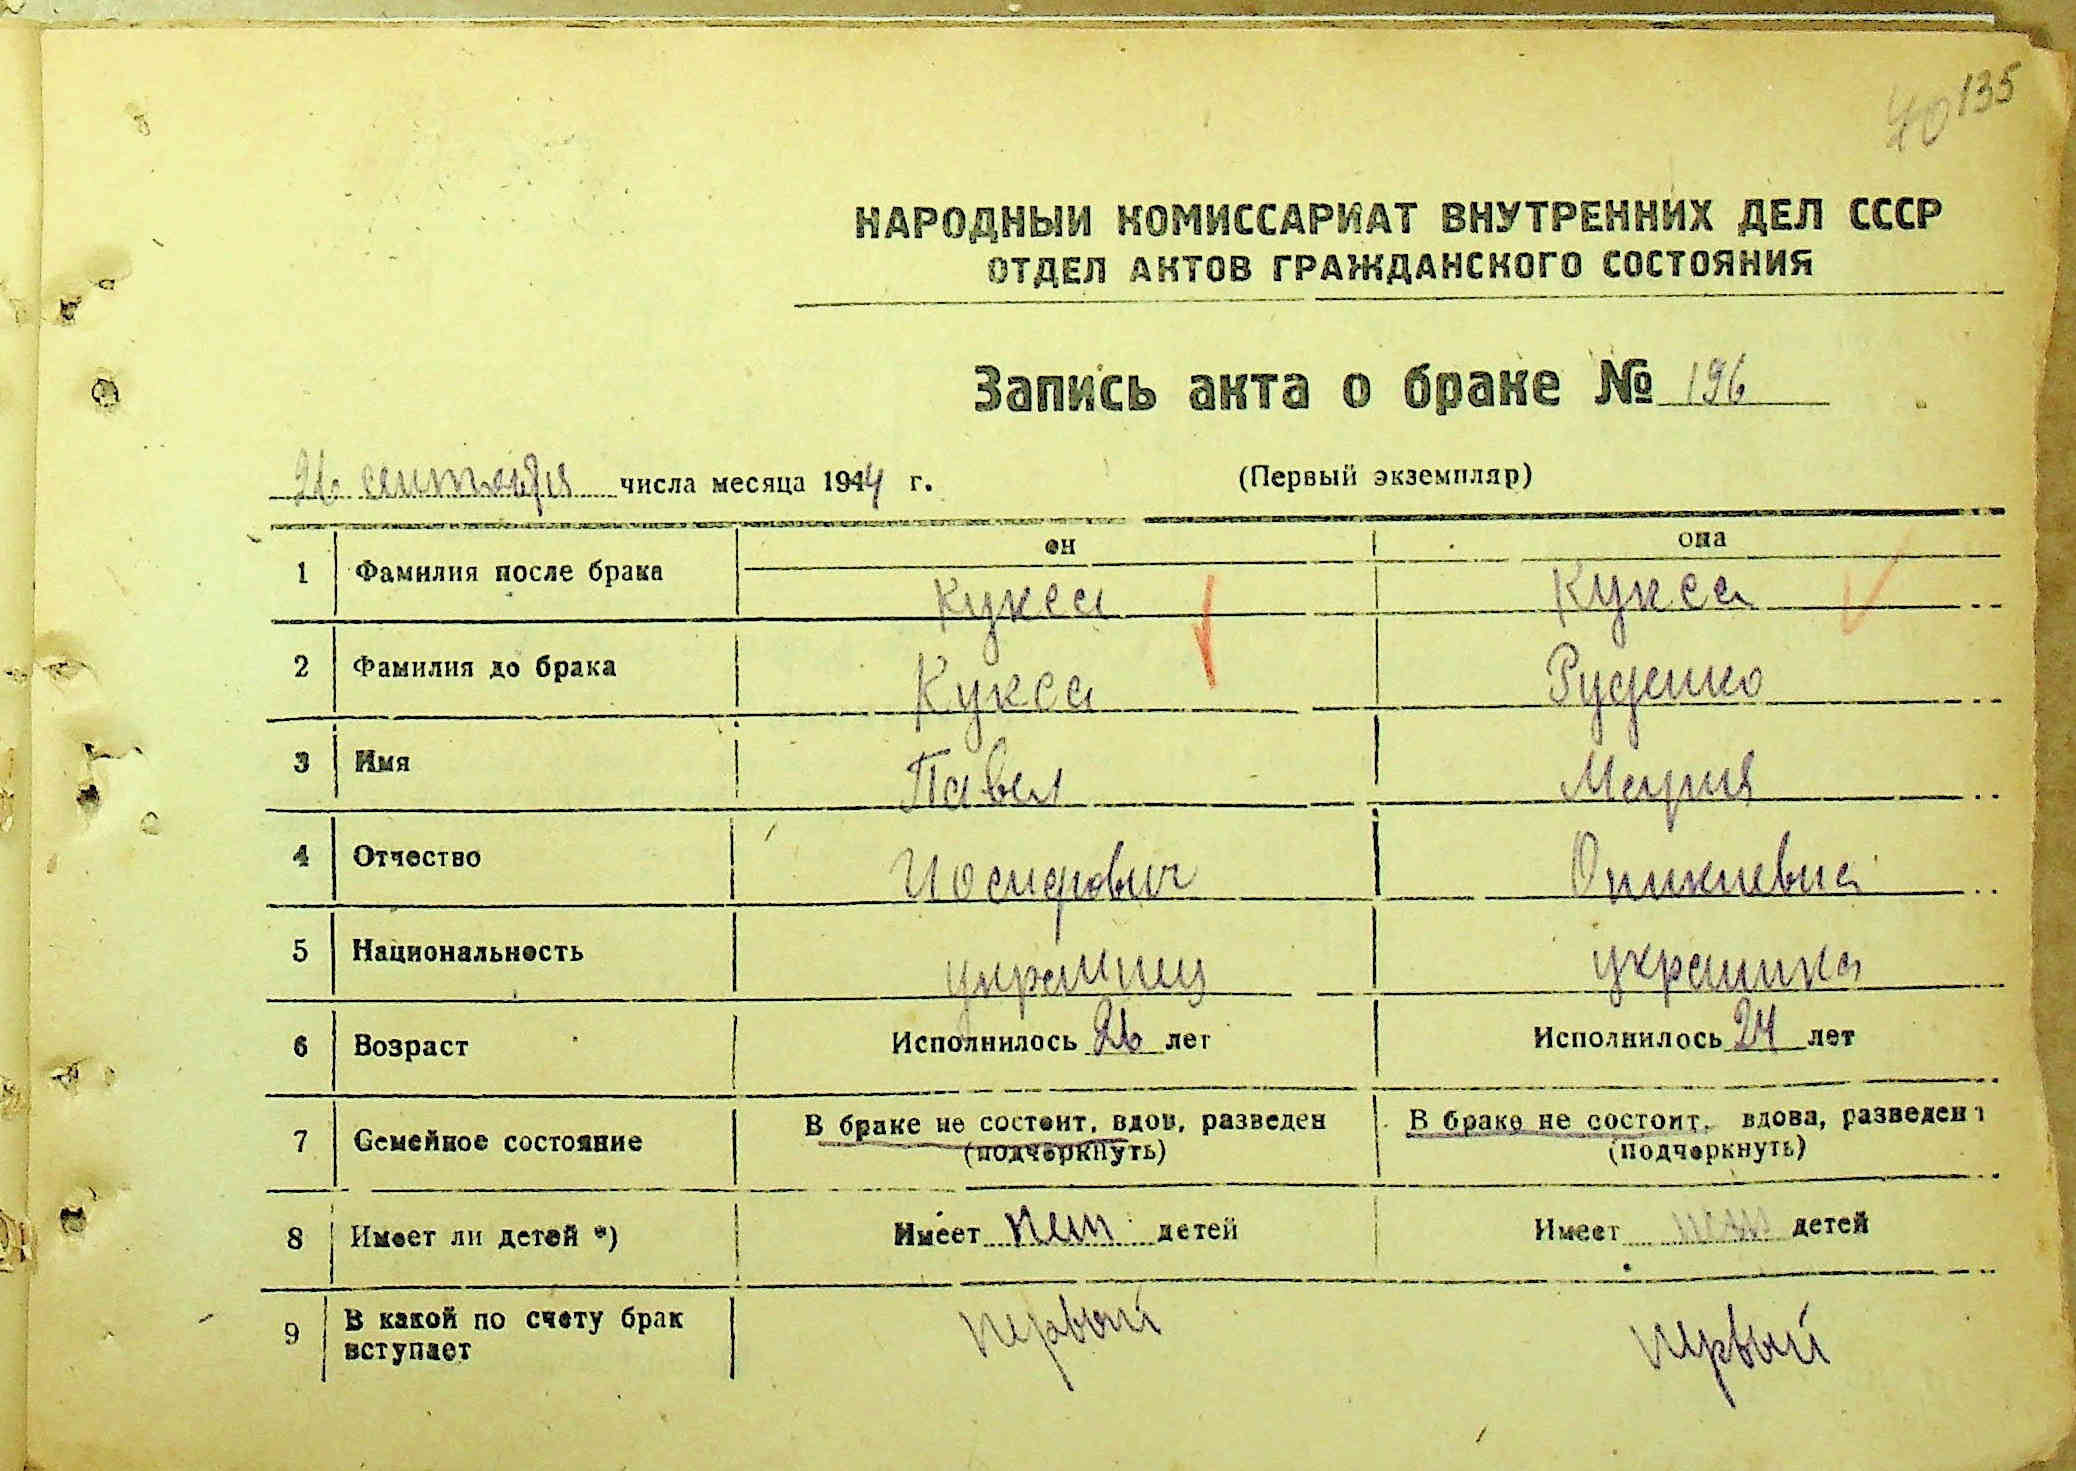 135
40
НАРОДНЫЙ КОМИССАРИАТ ВНУТРЕННИХ ДЕЛ СССР
ОТДЕЛ АКТОВ ГРАЖДАНСКОГО СОСТОЯНИЯ
Запись акта о браке № 196
26 сентября числа месяца 1944 г. (Первый экземпляр)
он она
1 Фамилия после брака Кукса Кукса
2 Фамилия до брака Кукса Руденко
3 Имя Павел Мария
4 Отчество Иосифович
5 Национальность украинец украинка
6 Возраст Исполнилось 26 лет Исполнилось 24 лет
7 Семейное состояние В браке не состоит, вдов, разведен В браке не состоит, вдова, разведена
(подчеркнуть) (подчеркнуть)
8 Имеет ли детей *) Имеет нет детей Имеет нет детей
9 В какой по счету брак вступает первый первый